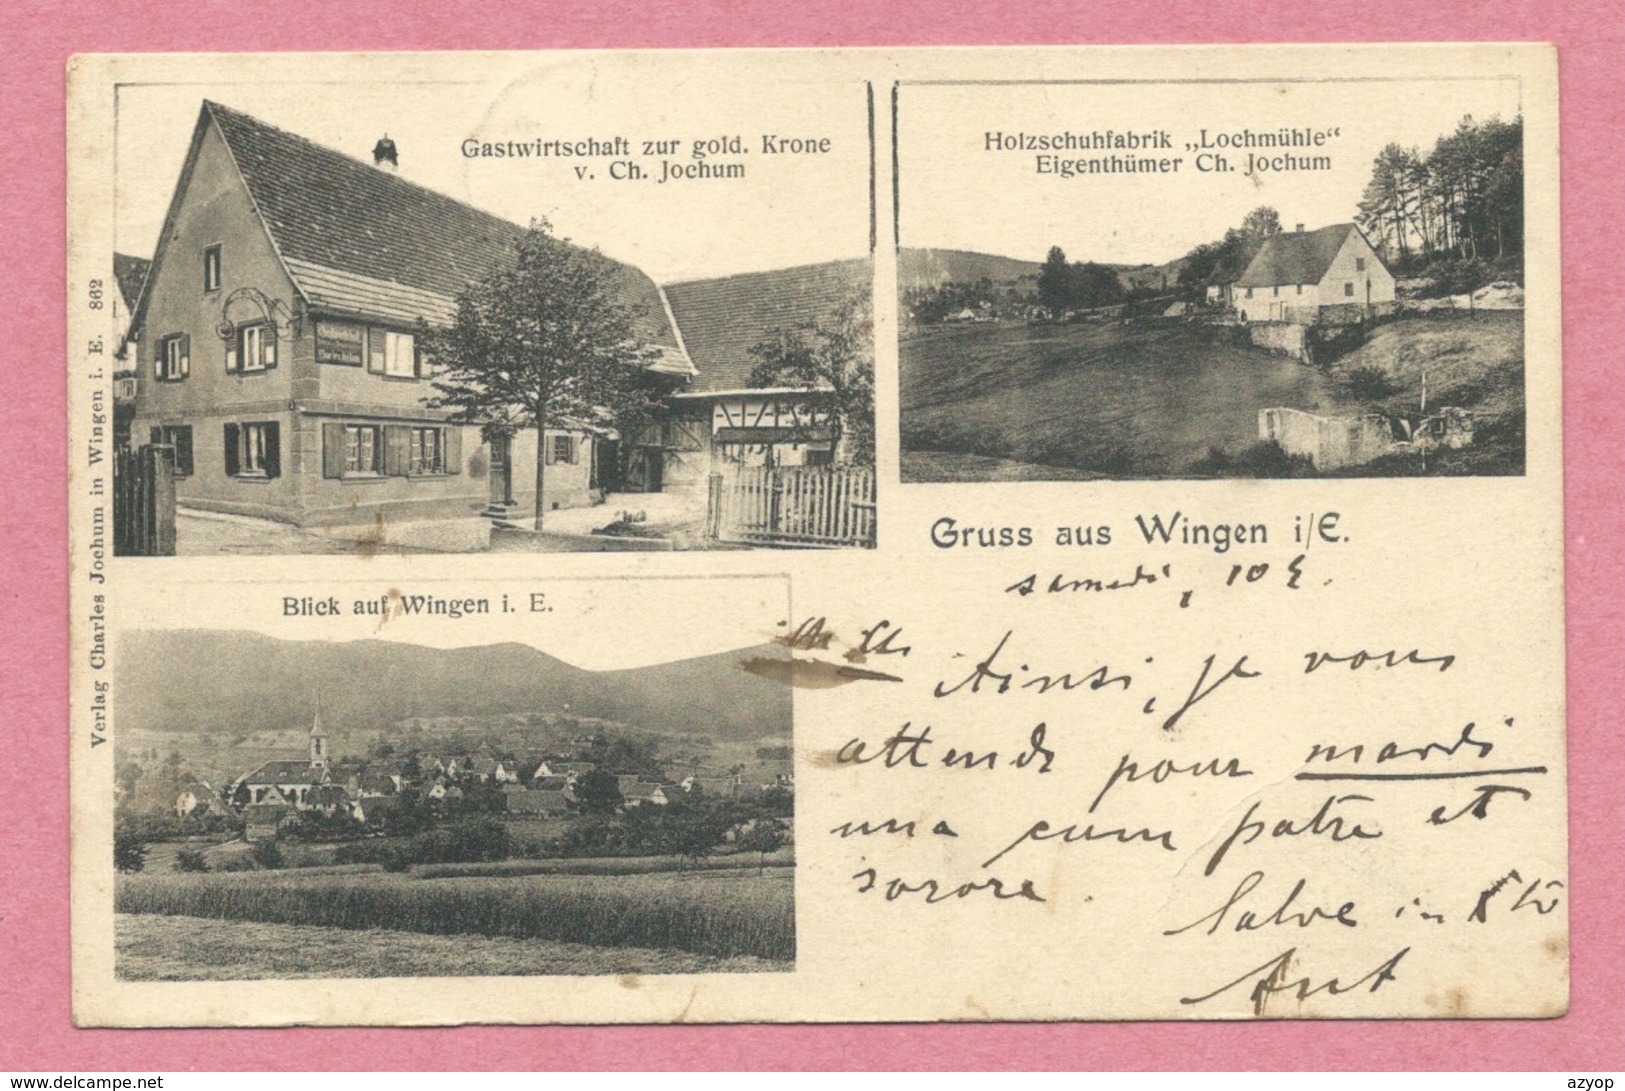 Gastwirtschaft zur gold. Krone
v. Ch. Jochum
Holzschuhfabrik „Lochmühle“
Eigenthümer Ch. Jochum
Verlag Charles Jochum in Wingen i. E. 862
Gruss aus Wingen i/E.
samedi, 10
Blick auf Wingen i. E.
Ainsi, je vous
attends pour mardi
una cum patre et
sorore.
Salve in
Ant
www.delcampe.net
azyop